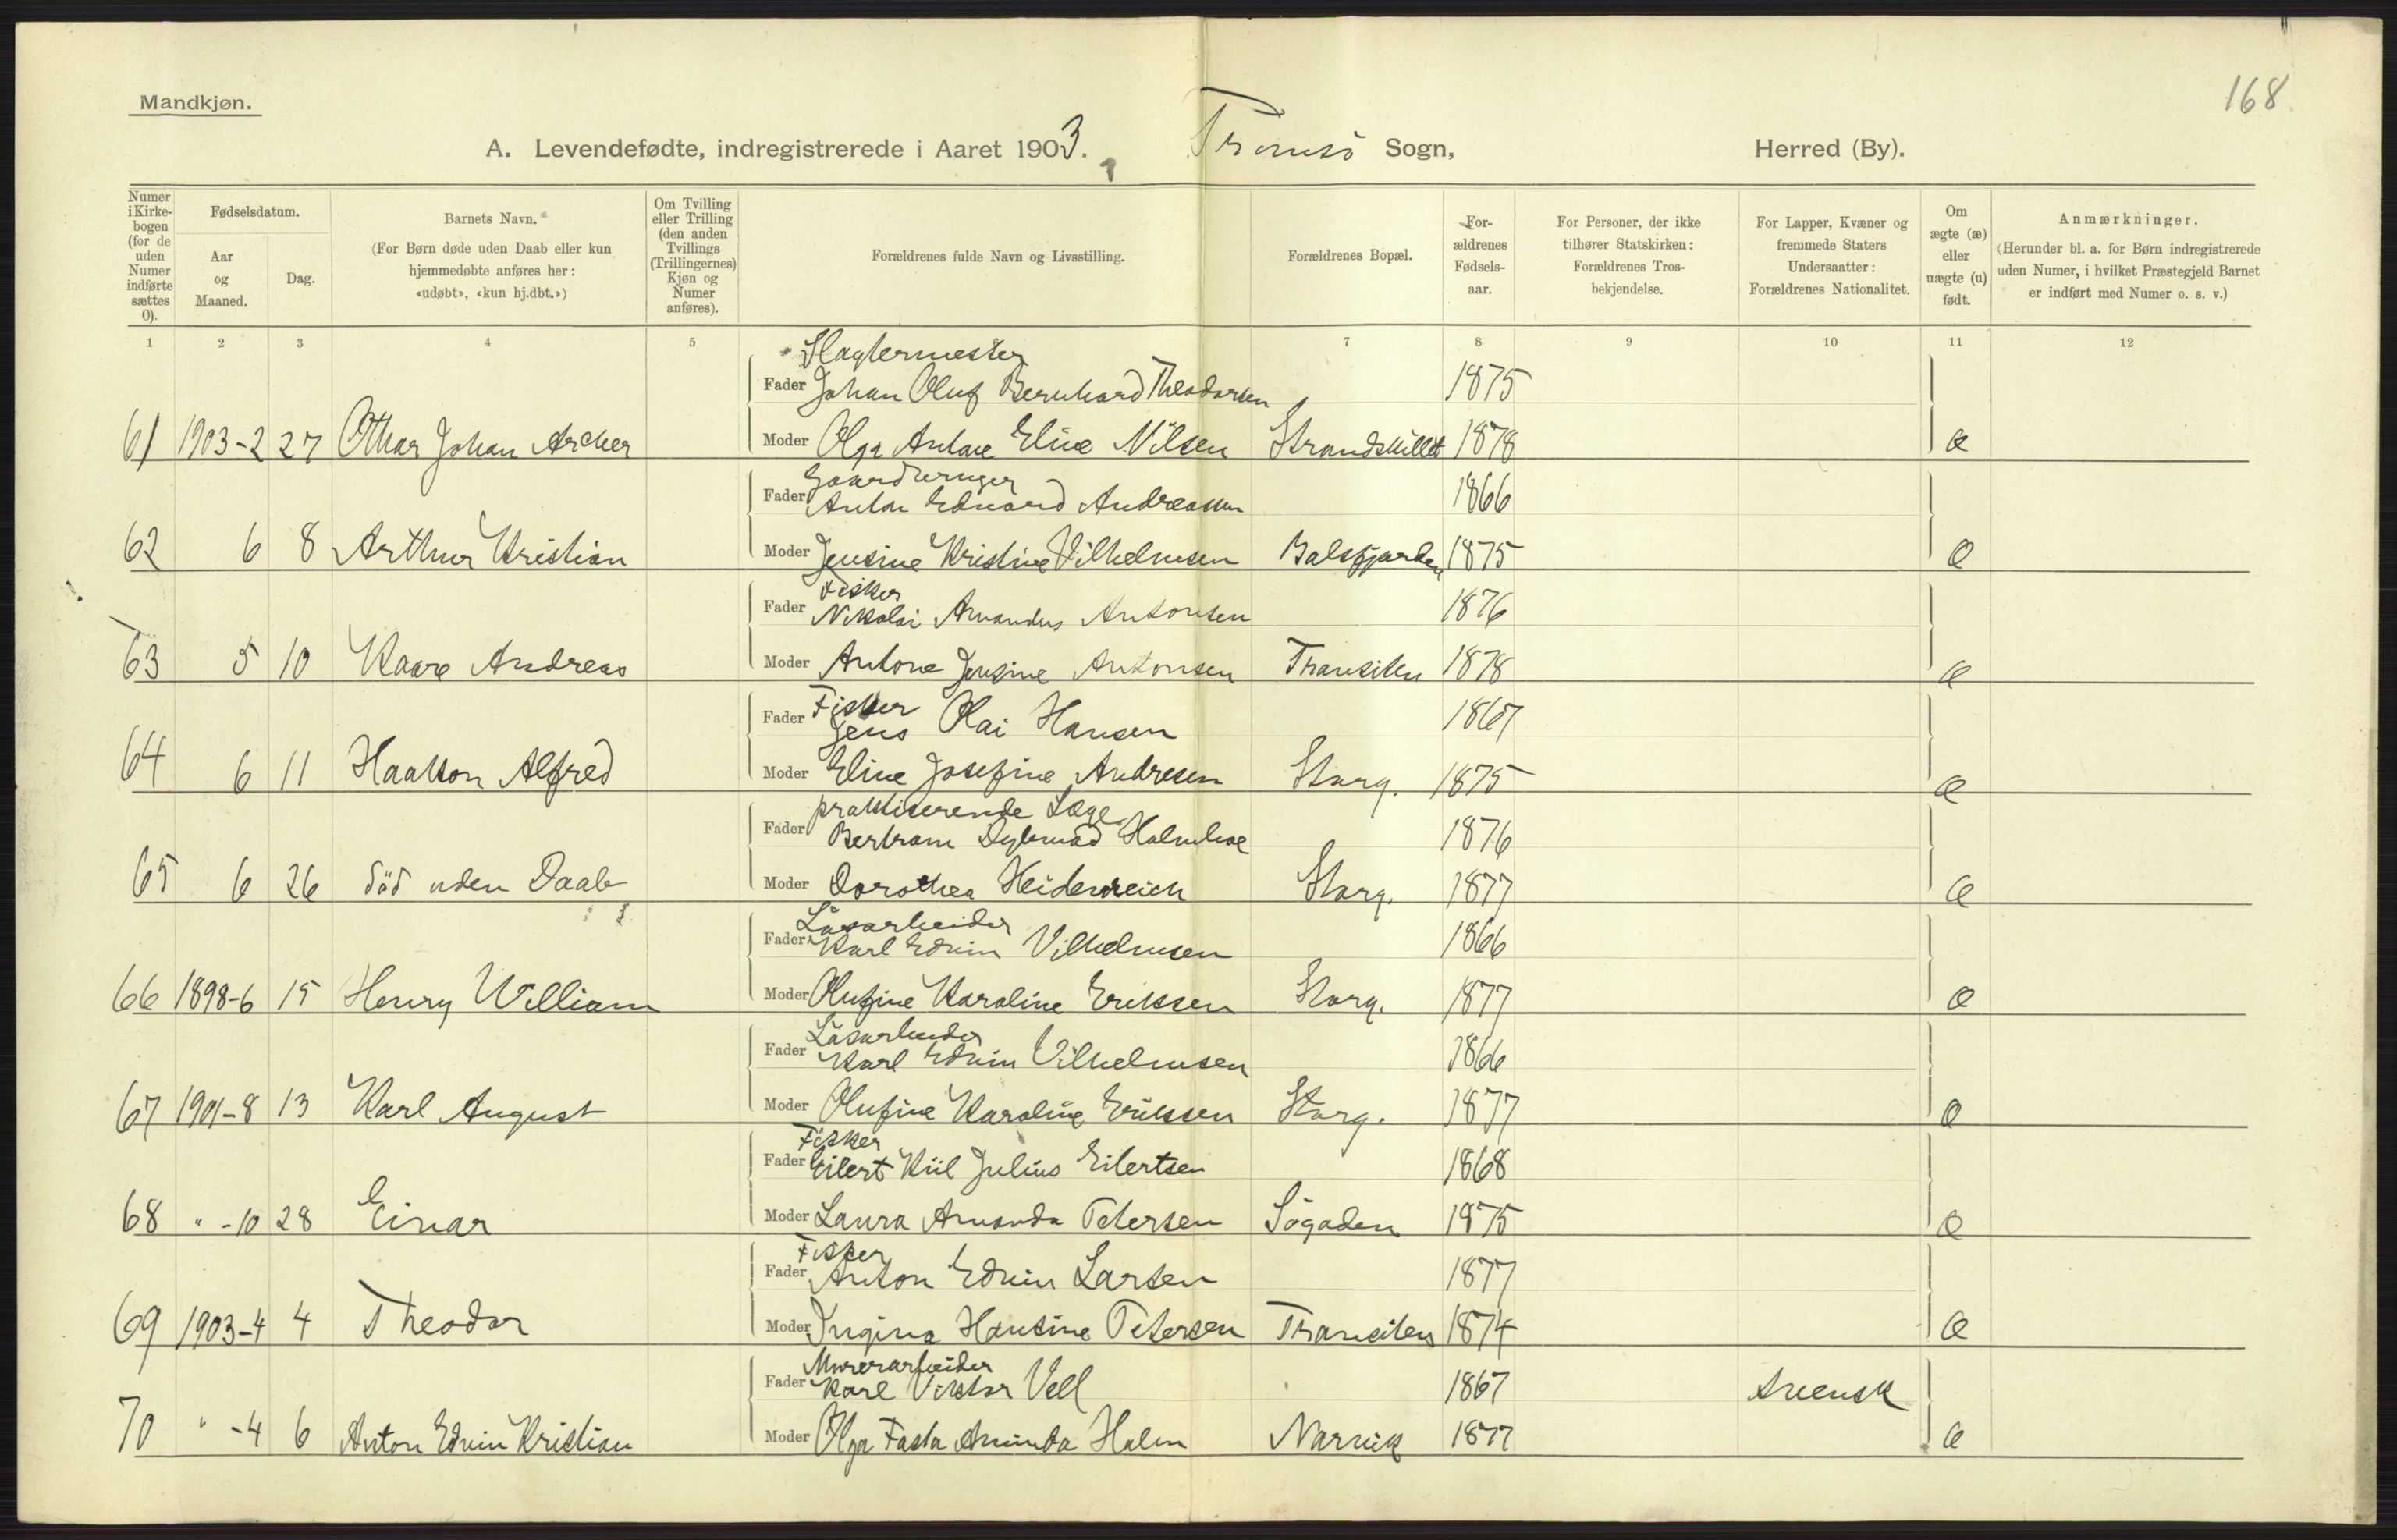 168
Mandkjøn.
A. Levendefødte, indregistrerede i Aaret 1903. Tromsö Sogn, Herred (By).
Numer i Kirke-bogen (for de uden Numer indførte sættes 0).
Fødselsdatum.
Aar og Maaned.
Dag.
Barnets Navn.
(For Børn døde uden Daab eller kun hjemmedøbte anføres her: «udøbt», «kun hj.dbt.»)
Om Tvilling eller Trilling (den anden Tvillings (Trillingernes) Kjøn og Numer anføres).
Forældrenes fulde Navn og Livsstilling.
Forældrenes Bopæl.
For-ældrenes Fødsels-aar.
For Personer, der ikke tilhører Statskirken: Forældrenes Tros-bekjendelse.
For Lapper, Kvæner og fremmede Staters Undersaatter: Forældrenes Nationalitet.
Om ægte (æ) eller uægte (u) født.
Anmærkninger.
(Herunder bl. a. for Børn indregistrerede uden Numer, i hvilket Præstegjeld Barnet er indført med Numer o. s. v.)
1 2 3 4 5 7 8 9 10 11 12
Slagtermester
Fader Johan Oluf Bernhard Theodorsen 1875
61 1903-2 27 Otthar Johan Archer Moder Olga Antone Eline Nilsen Strandskillet 1878 æ
Gaardbruger
Fader Anton Edvard Andreassen 1866
62 6 8 Arthur Kristian Moder Jensine Kristine Vilhelmsen Balsfjorden 1875 æ
Fisker
Fader Nikolai Amandus Antonsen 1876
63 5 10 Kaare Andreas Moder Antone Jensine Antonsen Thansiten 1878 æ
Fisker
Fader Jens Olai Hansen 1867
64 6 11 Haakon Alfred Moder Eline Josefine Andresen Storg. 1875 æ
praktiserende Læge
Fader Bertram Dybwad Holmboe 1876
65 6 26 död uden Daab Moder Dorothea Heidenreich Storg. 1877 æ
Lösarbeider
Fader Karl Edvin Vilhelmsen 1866
66 1898-6 15 Henry William Moder Olufine Karoline Eriksen Storg. 1877 æ
Lösarbeider
Fader Karl Edvin Vilhelmsen 1866
67 1901-8 13 Karl August Moder Olufine Karoline Eriksen Storg. 1877 æ
Fisker
Fader Eilert Kiil Julius Eilertsen 1868
68 " -10 28 Einar Moder Laura Amanda Petersen Sögaden 1875 æ
Fisker
Fader Anton Edvin Larsen 1877
69 1903-4 4 Theodor Moder Ingina Hansine Petersen Thansiten 1874 æ
Murerarbeider
Fader Karl Viktor Vell 1867 Svensk
70 " -4 6 Anton Edvin Kristian Moder Olga Fasta Aminda Holm Narvik 1877 æ